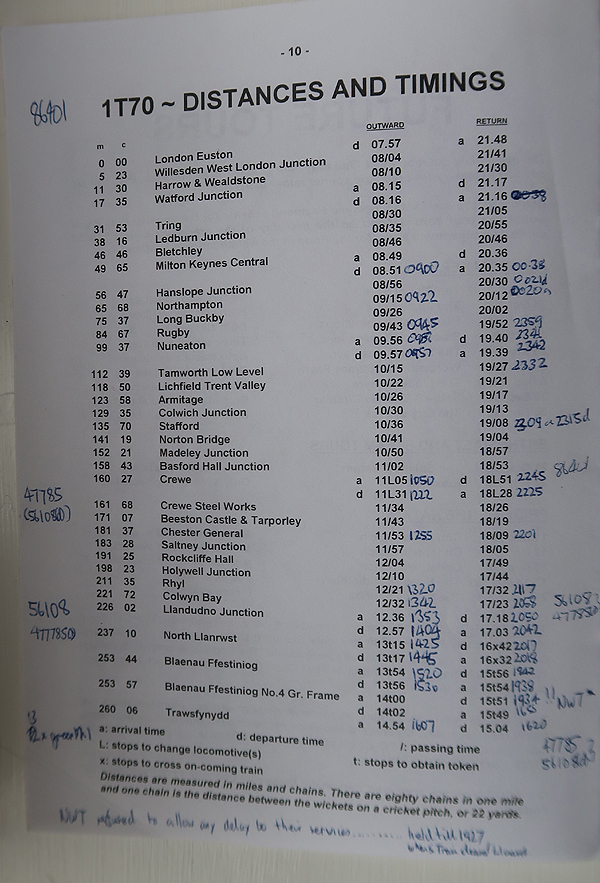 - 10 -
86401
1T70 ~ DISTANCES AND TIMINGS
m c OUTWARD RETURN
0 00 London Euston d 07.57 a 21.48
5 23 Willesden West London Junction 08/04 21/41
11 30 Harrow & Wealdstone 08/10 21/30
17 35 Watford Junction a 08.15 d 21.17
d 08.16 a 21.16
31 53 Tring 08/30 21/05
38 16 Ledburn Junction 08/35 20/55
46 46 Bletchley 08/46 20/46
49 65 Milton Keynes Central a 08.49 d 20.36
d 08.51 0900 a 20.35 0038
56 47 Hanslope Junction 08/56 20/30
65 68 Northampton 09/15 0922 20/12
75 37 Long Buckby 09/26 20/02
84 67 Rugby 09/43 0945 19/52 2359
99 37 Nuneaton a 09.56 d 19.40
d 09.57 0957 a 19.39 2342
112 39 Tamworth Low Level 10/15 19/27 2332
118 50 Lichfield Trent Valley 10/22 19/21
123 58 Armitage 10/26 19/17
129 35 Colwich Junction 10/30 19/13
135 70 Stafford 10/36 19/08 2309a 2315d
141 19 Norton Bridge 10/41 19/04
152 21 Madeley Junction 10/50 18/57
158 43 Basford Hall Junction 11/02 18/53
160 27 Crewe a 11L05 1050 d 18L51 2245 86401
47785 d 11L31 1222 a 18L28 2225
(56108D)
161 68 Crewe Steel Works 11/34 18/26
171 07 Beeston Castle & Tarporley 11/43 18/19
181 37 Chester General 11/53 1255 18/09 2201
183 28 Saltney Junction 11/57 18/05
191 25 Rockcliffe Hall 12/04 17/49
198 23 Holywell Junction 12/10 17/44
211 35 Rhyl 12/21 1320 17/32 2117
221 72 Colwyn Bay 12/32 1342 17/23 2058 56108
226 02 Llandudno Junction a 12.36 1353 d 17.18 2050 47785D
56108 d 12.57 1404 a 17.03 2042
47785D
237 10 North Llanrwst a 13t15 1425 d 16x42 2017
d 13t17 1445 a 16x32
253 44 Blaenau Ffestiniog a 13t54 1520 d 15t56 1942
d 13t56 1530 a 15t54 1938
253 57 Blaenau Ffestiniog No.4 Gr. Frame a 14t00 d 15t51 1934 !! NWT
d 14t02 a 15t49
260 06 Trawsfynydd a 14.54 1607 d 15.04 1620
a: arrival time d: departure time /: passing time
L: stops to change locomotive(s) t: stops to obtain token 47785
x: stops to cross on-coming train 56108D
Distances are measured in miles and chains. There are eighty chains in one mile
and one chain is the distance between the wickets on a cricket pitch, or 22 yards.
NWT refused to allow any delay to their services ........ held till 1927